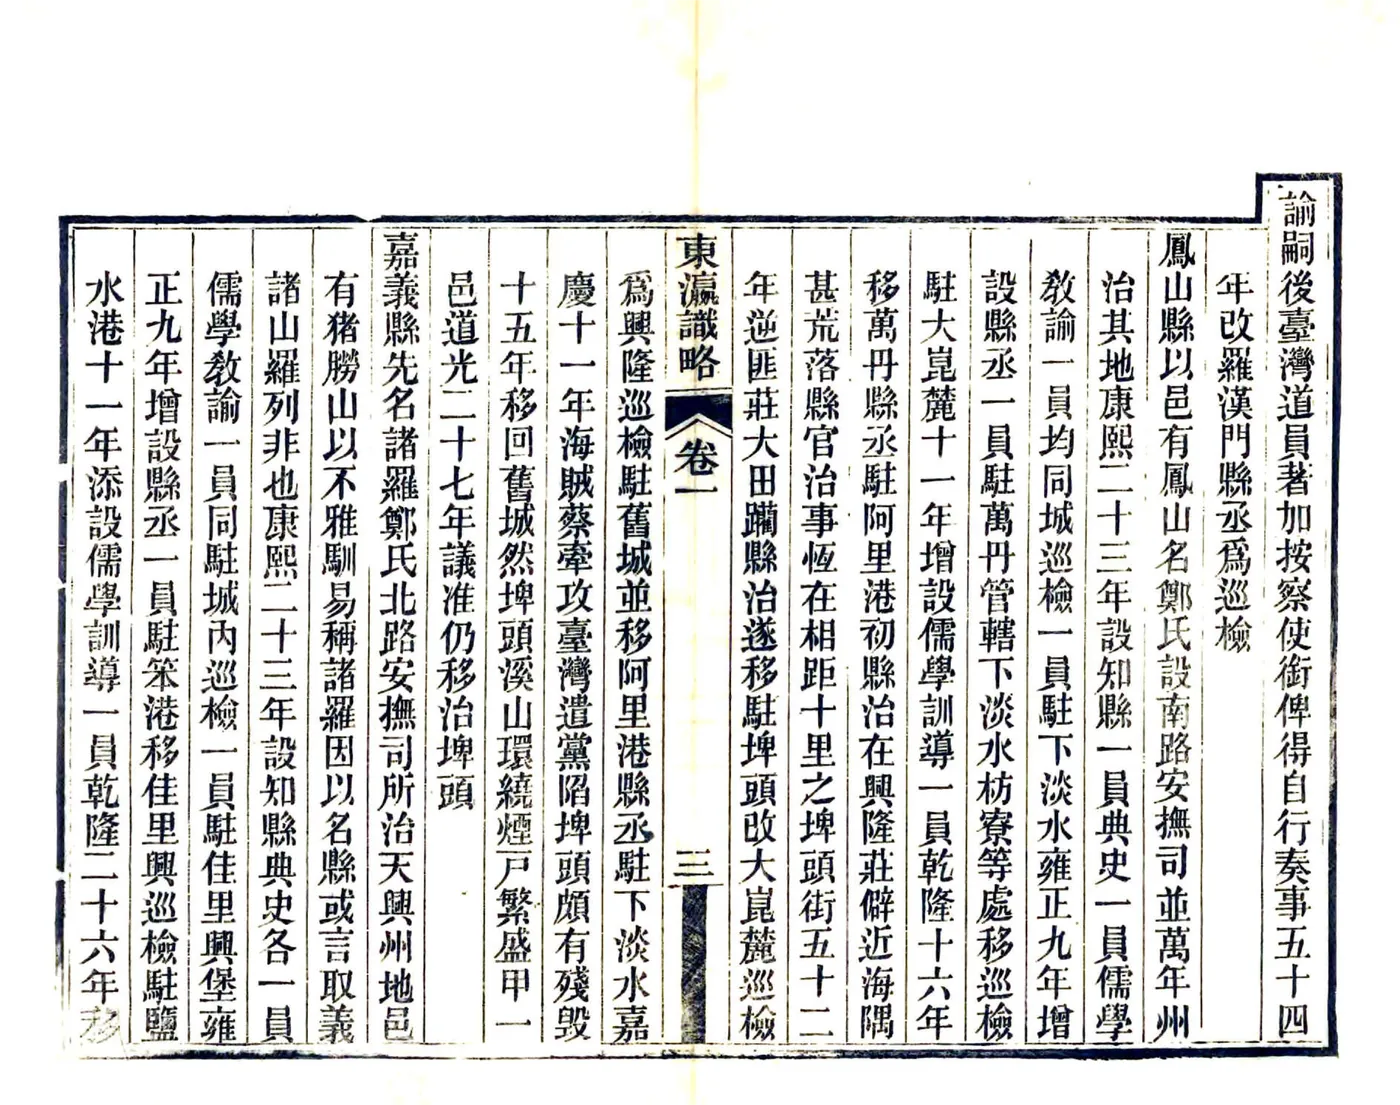 諭嗣後臺灣道員著加按察使銜俾得自行奏事五十四
年改羅漢門縣丞爲巡檢
鳳山縣以邑有鳳山名鄭氏設南路安撫司並萬年州
治其地康熙二十三年設知縣一員典史一員儒學
教諭一員均同城巡檢一員駐下淡水雍正九年增
設縣丞一員駐萬丹管轄下淡水枋寮等處移巡檢
駐大崑麓十一年增設儒學訓導一員乾隆十六年
移萬丹縣丞駐阿里港初縣治在興隆莊僻近海隅
甚荒落縣官治事恆在相距十里之埤頭街五十二
年逆匪莊大田躪縣治遂移駐埤頭改大崑麓巡檢
東瀛識略 卷一 三
爲興隆巡檢駐舊城並移阿里港縣丞駐下淡水嘉
慶十一年海賊蔡牽攻臺灣遣黨陷埤頭頗有殘毀
十五年移回舊城然埤頭溪山環繞煙戸繁盛甲一
邑道光二十七年議准仍移治埤頭
嘉義縣先名諸羅鄭氏北路安撫司所治天興州地邑
有猪朥山以不雅馴易稱諸羅因以名縣或言取義
諸山羅列非也康熙二十三年設知縣典史各一員
儒學教諭一員同駐城內巡檢一員駐佳里興堡雍
正九年增設縣丞一員駐笨港移佳里興巡檢駐鹽
水港十一年添設儒學訓導一員乾隆二十六年移